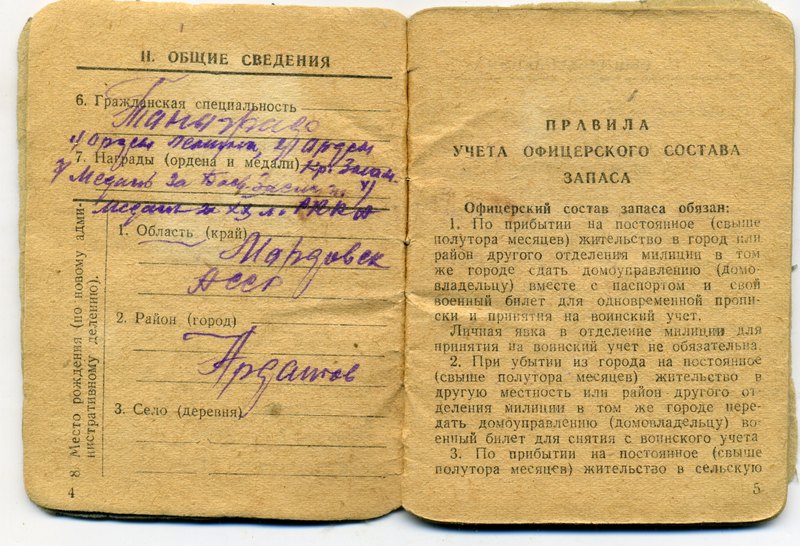 II. ОБЩИЕ СВЕДЕНИЯ
6. Гражданская специальность
1) Орден Ленина, 2) Орден
7. Награды (ордена и медали) Кр. Знам.
3) Медаль За Боев. Заслуги 4)
Медаль за XX л. РККА
8. Место рождения (по новому адми-
нистративному делению).
1. Область (край)
Мордовск
АССР
2. Район (город)
Ардатов
3. Село (деревня)
4
ПРАВИЛА
УЧЕТА ОФИЦЕРСКОГО СОСТАВА
ЗАПАСА
Офицерский состав запаса обязан:
1. По прибытии на постоянное (свыше
полутора месяцев) жительство в город или
район другого отделения милиции в том
же городе сдать домоуправлению (домо-
владельцу) вместе с паспортом и свой
военный билет для одновременной пропи-
ски и принятия на воинский учет.
Личная явка в отделение милиции для
принятия на воинский учет не обязательна.
2. При убытии из города на постоянное
(свыше полутора месяцев) жительство в
другую местность или район другого от-
деления милиции в том же городе пере-
дать домоуправлению (домовладельцу) во-
енный билет для снятия с воинского учета
3. По прибытии на постоянное (свыше
полутора месяцев) жительство в сельскую
5